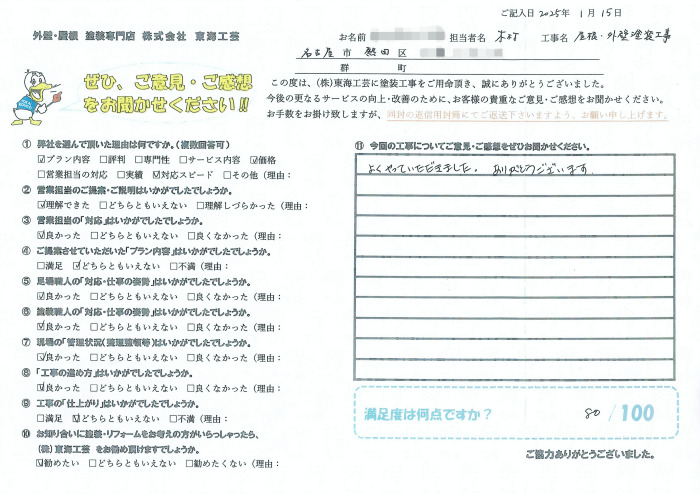 ご記入日 2025年 1月 15日
外壁・屋根 塗装専門店 株式会社 東海工芸
お名前 担当者名 木村 工事名 屋根・外壁塗装工事
名古屋市 熱田区
郡 町
ぜひ、ご意見・ご感想
をお聞かせください!!
この度は、(株)東海工芸に塗装工事をご用命頂き、誠にありがとうございました。
今後の更なるサービスの向上・改善のために、お客様の貴重なご意見・ご感想をお聞かせください。
お手数をお掛け致しますが、同封の返信用封筒にてご返送下さいますよう、お願い申し上げます。
① 弊社を選んで頂いた理由は何ですか。(複数回答可)
☑プラン内容 □評判 □専門性 □サービス内容 ☑価格
□営業担当の対応 □実績 ☑対応スピード □その他(理由:
② 営業担当のご提案・ご説明はいかがでしたでしょうか。
☑理解できた □どちらともいえない □理解しづらかった(理由:
③ 営業担当の「対応」はいかがでしたでしょうか。
☑良かった □どちらともいえない □良くなかった(理由:
④ ご提案させていただいた「プラン内容」はいかがでしたでしょうか。
□満足 ☑どちらともいえない □不満(理由:
⑤ 足場職人の「対応・仕事の姿勢」はいかがでしたでしょうか。
☑良かった □どちらともいえない □良くなかった(理由:
⑥ 塗装職人の「対応・仕事の姿勢」はいかがでしたでしょうか。
☑良かった □どちらともいえない □良くなかった(理由:
⑦ 現場の「管理状況(整理整頓等)はいかがでしたでしょうか。
☑良かった □どちらともいえない □良くなかった(理由:
⑧ 「工事の進め方」はいかがでしたでしょうか。
☑良かった □どちらともいえない □良くなかった(理由:
⑨ 工事の「仕上がり」はいかがでしたでしょうか。
□満足 ☑どちらともいえない □不満(理由:
⑩ お知り合いに塗装・リフォームをお考えの方がいらっしゃったら、
(株)東海工芸 をお勧め頂けますでしょうか。
☑勧めたい □どちらともいえない □勧めたくない(理由:
⑪ 今回の工事についてご意見・ご感想をぜひお聞かせください。
よくやっていただきました。ありがとうございます。
満足度は何点ですか? 80 /100
ご協力ありがとうございました。